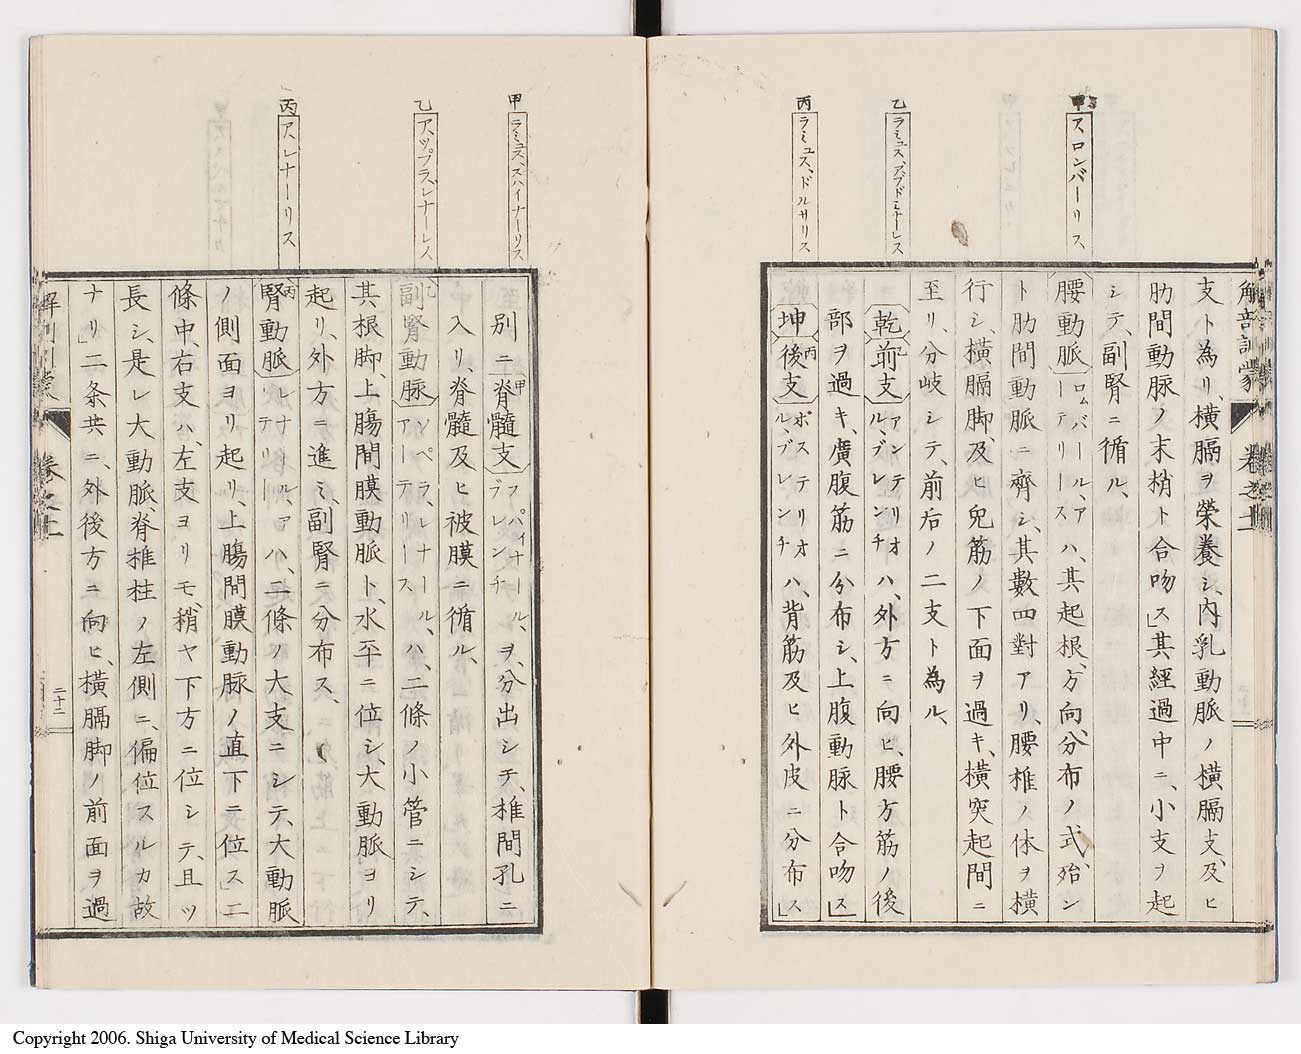 甲 ス ロンバーリス、
乙 ラミュス、アブドミナーレス
丙 ラミュス、ドルサリス
解剖訓蒙
支ト為リ、横膈ヲ榮養シ、内乳動脈ノ横膈支、及ヒ
肋間動脈ノ末梢ト合吻ス」其經過中ニ、小支ヲ起
シテ、副腎ニ循ル、
腰動脈 ロムバール、アーテリース ハ、其起根、方向、分布ノ式、殆ント肋間動脈ニ齊シ、其數四對アリ、腰椎ノ体ヲ横
行シ、横膈脚、及ヒ皃筋ノ下面ヲ過キ、横突起間ニ
至リ、分岐シテ、前后ノ二支ト為ル、
乾 乙前支 アンテリオル、ブレンチ ハ、外方ニ向ヒ、腰方筋ノ後
部ヲ過キ、廣腹筋ニ分布シ、上腹動脈ト合吻ス」
坤 丙後支 ポステリオル、ブレンチ ハ、背筋及ヒ外皮ニ分布ス」
甲 ラミュス、スハイナーリス
乙 ア、ツプラ、レナーレス
丙 ア、レナーリス
別ニ甲脊髓支 スパイナール、ブレンチ ヲ、分出シテ、椎間孔ニ
入リ、脊髓及ヒ被膜ニ循ル、
乙副腎動脈 ソペラ、レナール、アーテリース ハ、二條ノ小管ニシテ、
其根脚、上腸間膜動脈ト、水平ニ位シ、大動脈ヨリ
起リ、外方ニ進ミ、副腎ニ分布ス、
丙腎動脈 レナール、アーテリー ハ、二條ノ大支ニシテ、大動脈
ノ側面ヨリ起リ、上腸間膜動脈ノ直下ニ位ス」二
條中、右支ハ、左支ヨリモ、稍ヤ下方ニ位シテ、且ツ
長シ、是レ大動脈、脊椎柱ノ左側ニ、偏位スルカ故
ナリ」二条共ニ、外後方ニ向ヒ、横膈脚ノ前面ヲ過
二十二
Copyright 2006. Shiga University of Medical Science Library